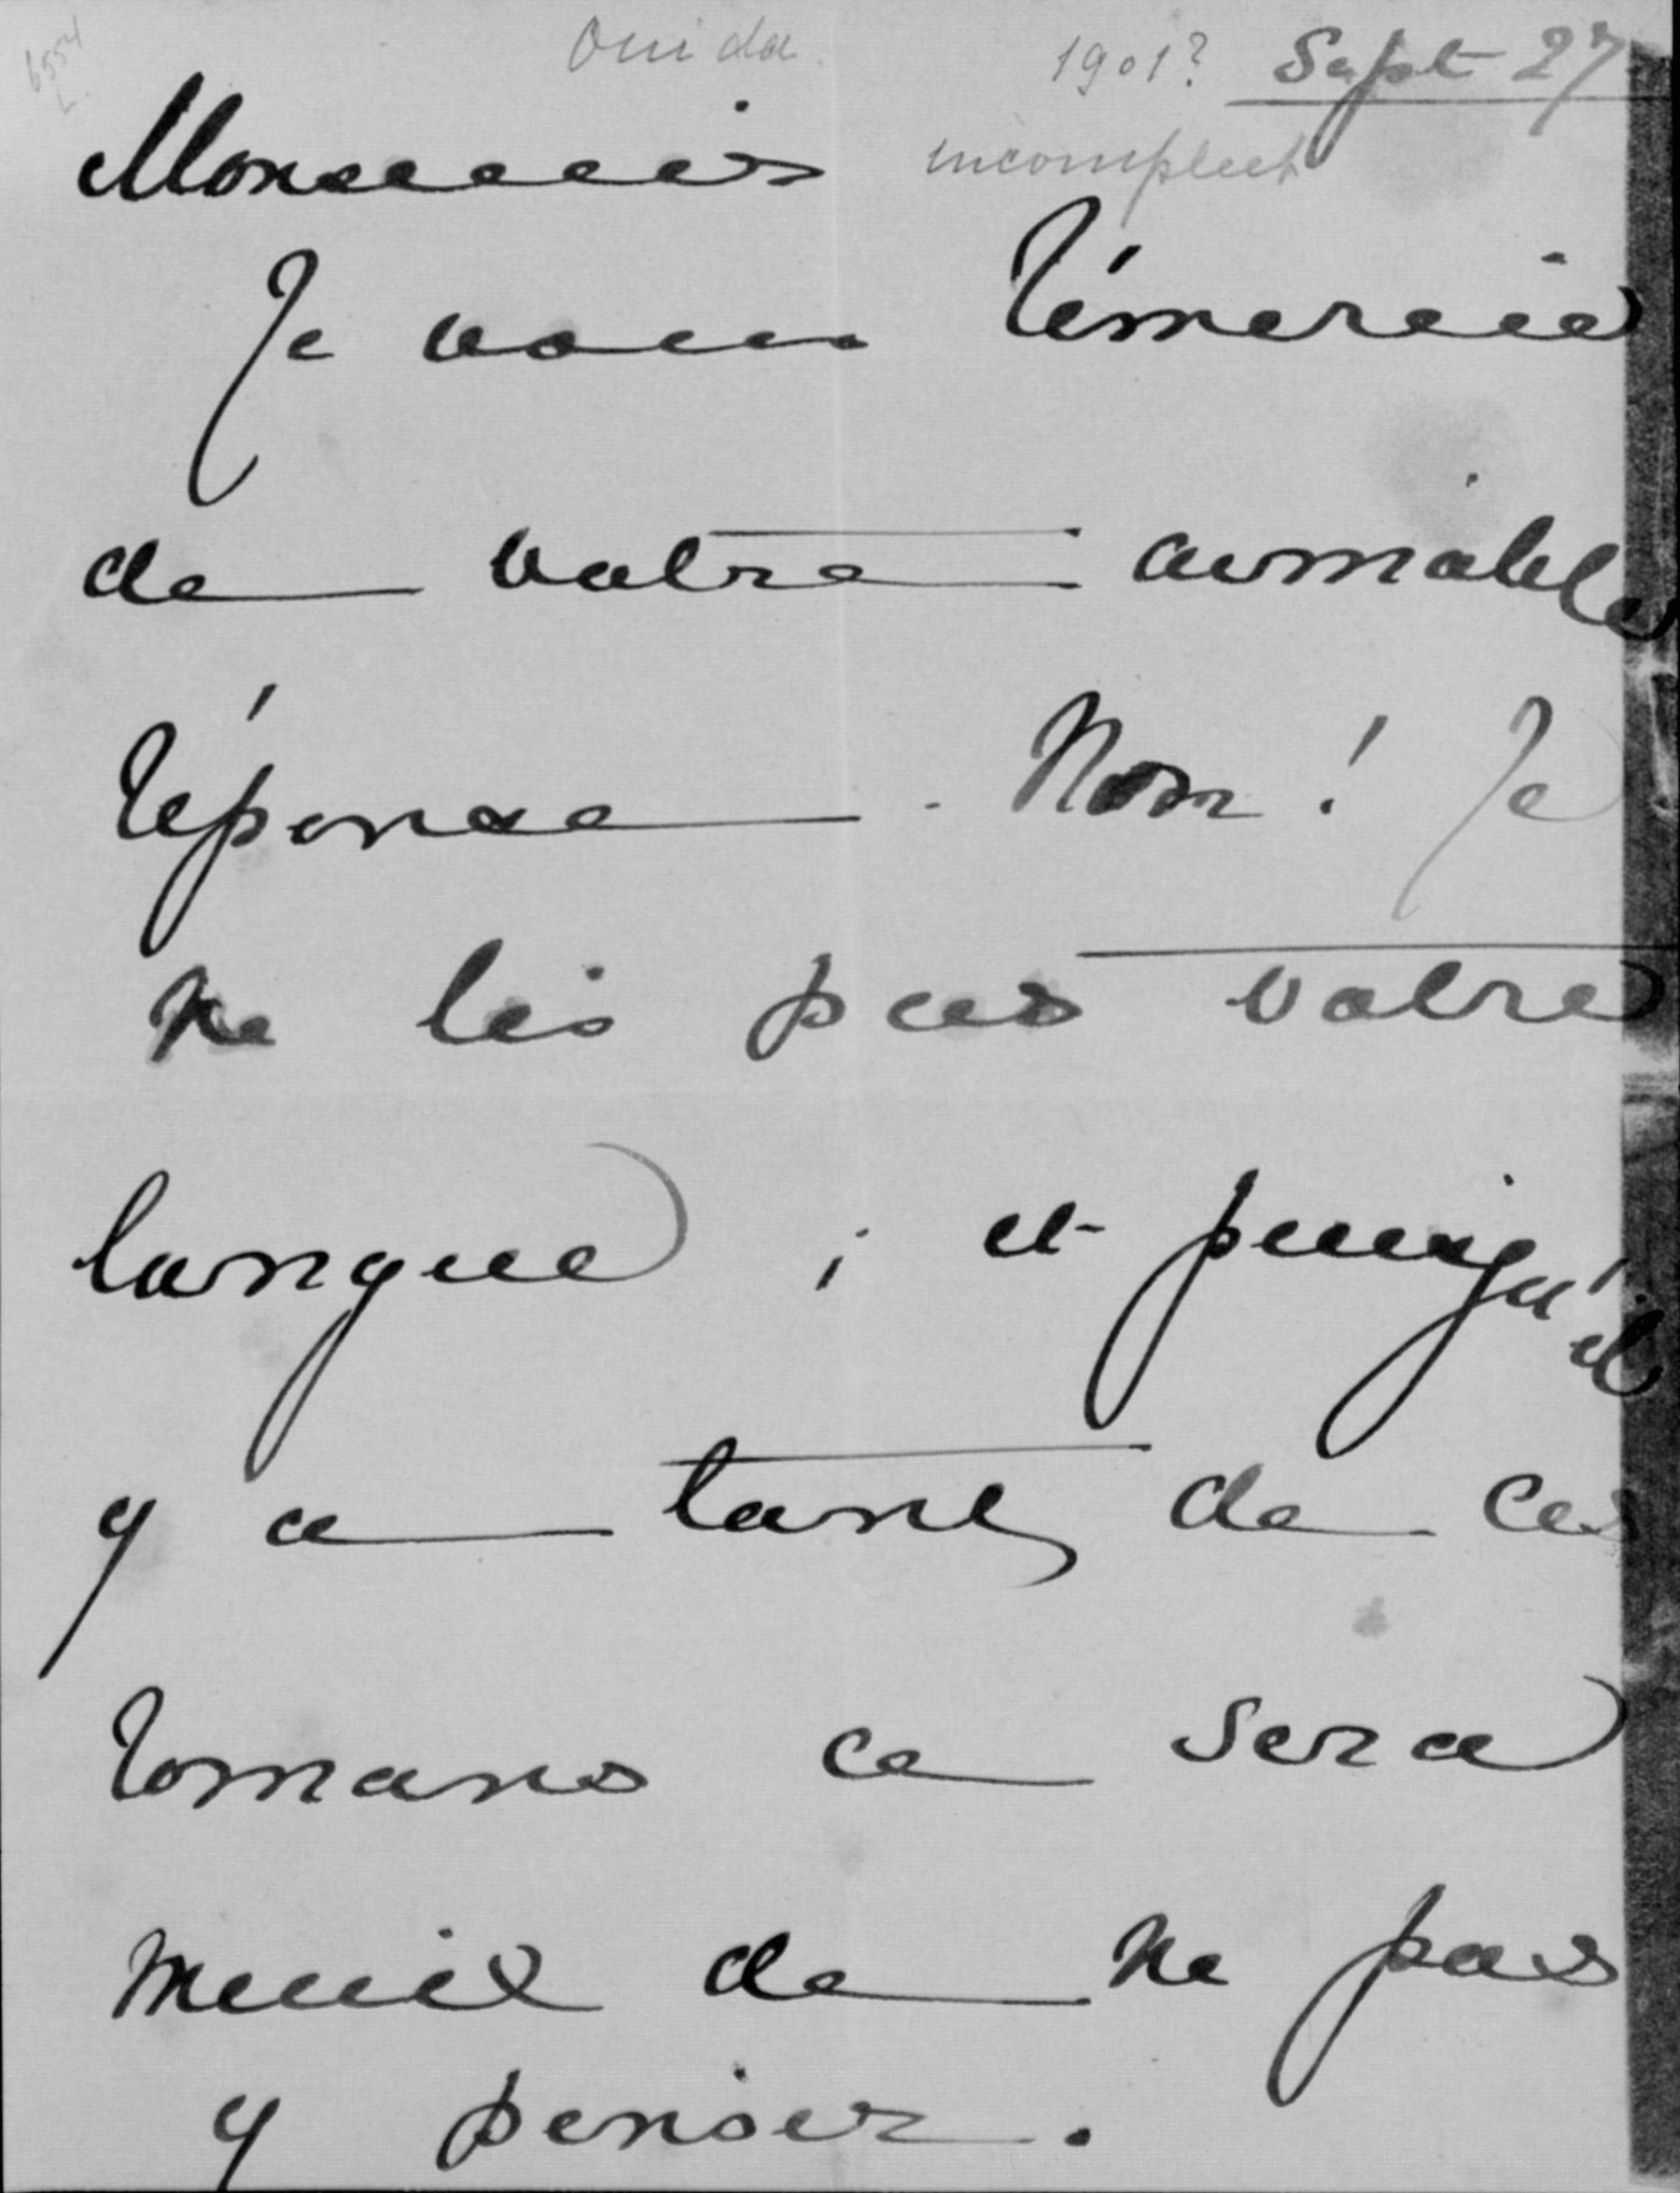 Ouida.
1901? Sept 27
incompleet
Monsieur
Je vous rémercie
de votre aimable
réponse. Non! Je
ne lis pas votre
langue; et puisqu'il
y a tant de ces
romans ce sera
mieux de ne pas
y penser.